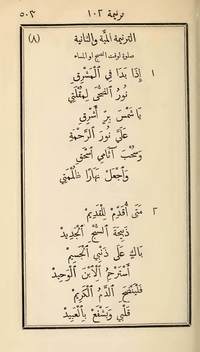 ترنيمة ١٠٢
٥٠٣
الترنيمة المئة والثانية
(٨)
صلوة لوقت الصبح او المساء
١ إِذَا بَدَا فِي ٱلْمَشْرِقِ
نُورُ ٱلضُّحَى لِمُقْلَتِي
يَا شَمْسَ بِرٍّ أَشْرِقِي
عَلَيَّ نُورَ ٱلرَّحْمَةِ
وَسُحْبَ آثَامِي ٱمْحَقِ
وَٱجْعَلْ نَهَارًا ظُلْمَتِي
٢ مَتَى أُقَدِّمْ لِلْقَدِيمْ
ذَبِيحَةَ ٱلسَّبْحِ ٱلْجَدِيدْ
بَاكٍ عَلَى ذَنْبِي ٱلْجَسِيمْ
أَسْتَرْحِمُ ٱلْاِبْنَ ٱلْوَحِيدْ
فَلْيَنْضَحِ ٱلدَّمُ ٱلْكَرِيمْ
قَلْبِي وَيَشْفَعْ بِٱلْعَبِيدْ